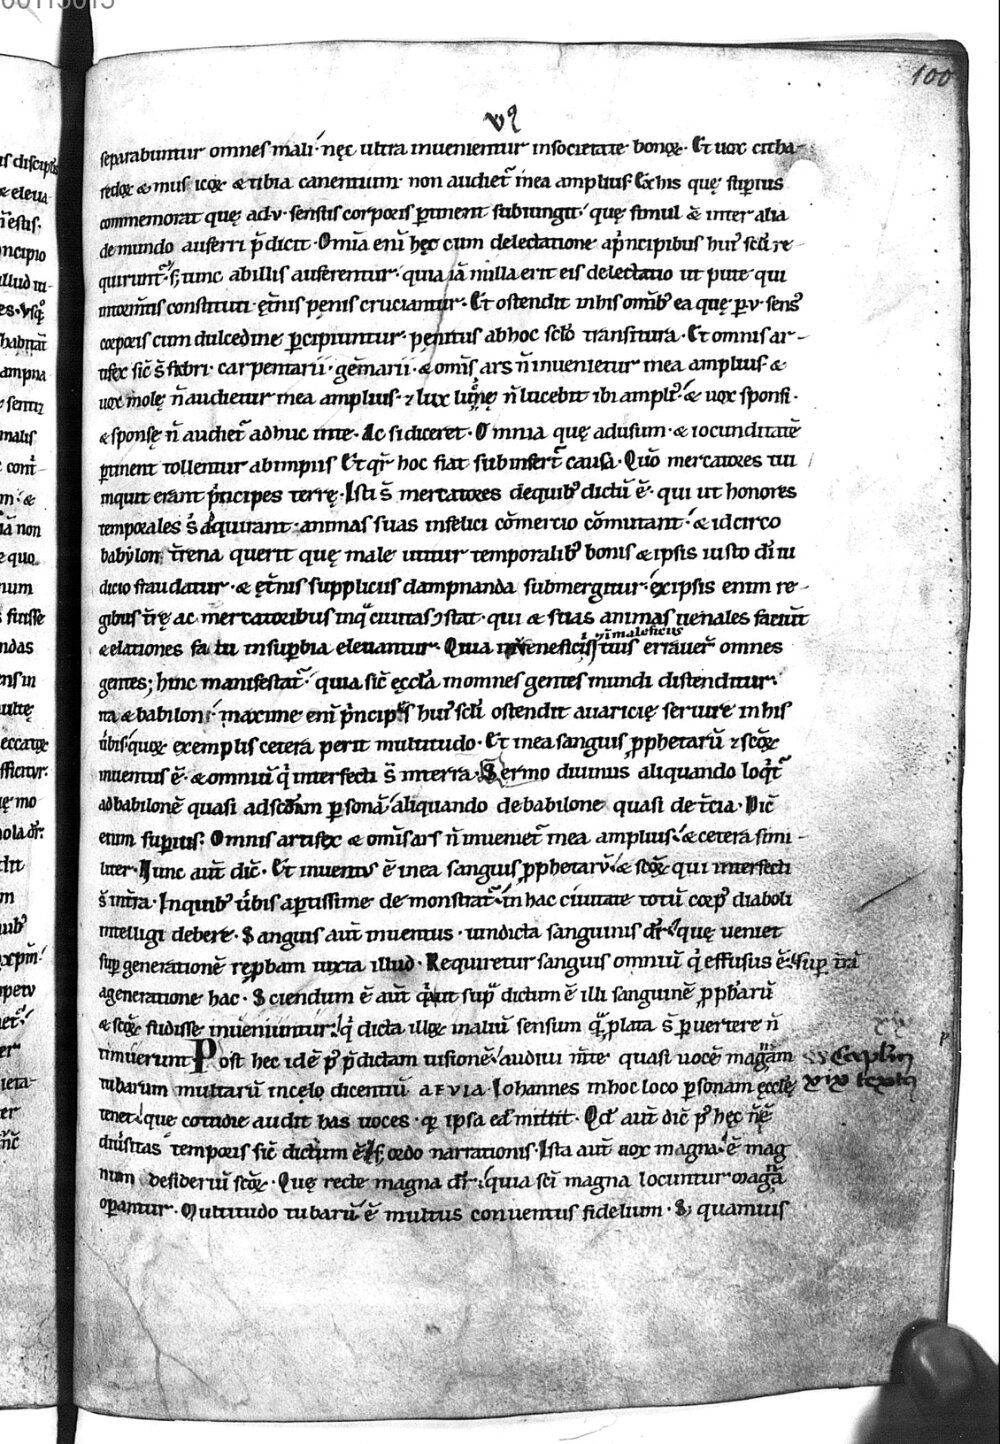 100
separabuntur omnes mali· nęc ultra inuenientur insocietate bonoꝝ· Et uox citha-
redoꝝ & mus icoꝝ & tibia canentium· non audiet̄ inea amplius· Ex his quę supius
commemorat quę ad·v· sensus corporis p̱tinent subiungit· quę simul ē inter alia
de mundo auferri p̄dicit· Om̄ia eni̅ hęc cum delectatione a pͥncipibus huiꝰ sc̅li re-
quirunt᷑· sꝫ tunc ab illis auferentur· quia ia̅ nulla erit eis delectatio ut pute qui
constituti· et̅nis penis cruciantur· Et ostendit in his om̅ibꝰ ea quę p̱ ·v· sensꝰ
corporis cum dulcedine p̱cipiuntur· penitus ab hoc sc̅lo transitura· Et omnis ar-
tifex sic̅ s̅ fabri· carpentarii· gem̅arii· & om̅is ars n̅ inuenietur inea amplius· &
uox molę n̅ audietur inea amplius· ⁊ lux lucernę n̅ lucebit ibi ampliꝰ· & uox sponsi·
& sponsę n̅ audiet᷑ adhuc inte· Ac si diceret· Omnia quę adusum· & iocunditate̅
p̱tinent tollentur abimpiis Et qͬ hoc fiat subinfert̅ causa· Quo̅ mercatores tui
inquit erant pͥncipes terrę· Isti s̅ mercatores dequibꝰ dictu̅ e̅· qui ut honores
temporales s̅ adquirant· animas suas infelici co̅mercio co̅mutant· & idcirco
babylon t̅rena querit quę male utitur temporalibꝰ bonis & ipsis iusto di̅ iu
dicio fraudatur· & et̅nis suppliciis dampnanda submergitur· ex ipsis enim re-
gibus t̅rę ac mercatoribus inqͣ ciuitas ↄstat· qui & suas animas uenales faciu̅t
& elationes in sup̱bia eleuantur· Quia inueneficiis tuis errauer̅ omnes
.i. maleficiis
gentes; hinc manifestat᷑· quia sic̅ ęccl̅a in omnes gentes mundi distenditur·
ita & babilon· maxime eni̅ pͥncipes huiꝰ sc̅li ostendit auaricię seruire in his
u̅bis· quoꝝ exemplis cetera perit multitudo· Et inea sanguis ꝓphetaru̅ ⁊ sc̅oꝝ
inuentus e̅· & omniu̅ qͥ interfecti s̅ interra· Sermo diuinus aliquando loqͥt᷑
ad babilone̅ quasi ad p̱sona̅· aliquando de babilone quasi de t̅cia· Dic̅
enim supius· Omnis artifex & om̅is ars n̅ inueniet᷑ inea amplius· & cetera simi-
liter· Nunc aut̅ dic̅· Et inuentus e̅ inea sanguis ꝓphetaru̅· & sc̅oꝝ qui interfecti
s̅ int̅ra· Inquibꝰ u̅bis ap̱tissime demonstrat᷑· in hac ciuitate totu̅ corpꝰ diaboli
intelligi debere· Sanguis aut̅ inuentus· uindicta sanguinis dr̅· quę ueniet
sup̱ generatione̅ rep̱bam iuxta illud· Requiretur sanguis omniu̅ qͥ effusus e̅ sup̱ t̅ra̅
ageneratione hac· Sciendum e̅ aut̅ supͣ dictum e̅ illi sanguine̅ ꝓpharu̅
& sc̅oꝝ fudisse inueniuntur· qͥ dicta illoꝝ inaliu̅ sensum p̱uertere n̅
timuerunt· Post hec ide̅ pꝰ p̄dictam uisione̅· audiui quasi uoce̅ magna̅m
xx
capl̅m
xix
tubarum multaru̅ incęlo dicentiu̅ aevia· Iohannes in hoc loco p̱sonam ęccl̅ę
tenet· que cotidie audit has uoces· ipsa mittit· Qd̅ aut̅ dic̅ pꝰ hęc n̅ e̅
diu̅sitas temporis sic̅ dictum e̅ sꝫ ordo narrationis· Ista aut̅ uox magna· e̅ mag
num desideriu̅ sc̅oꝝ· Quę recte magna dr̅· quia sc̅i magna locuntur magna̅
operantur· Multitudo tubaru̅ e̅ multus conuentus fidelium· Sꝫ quamuis